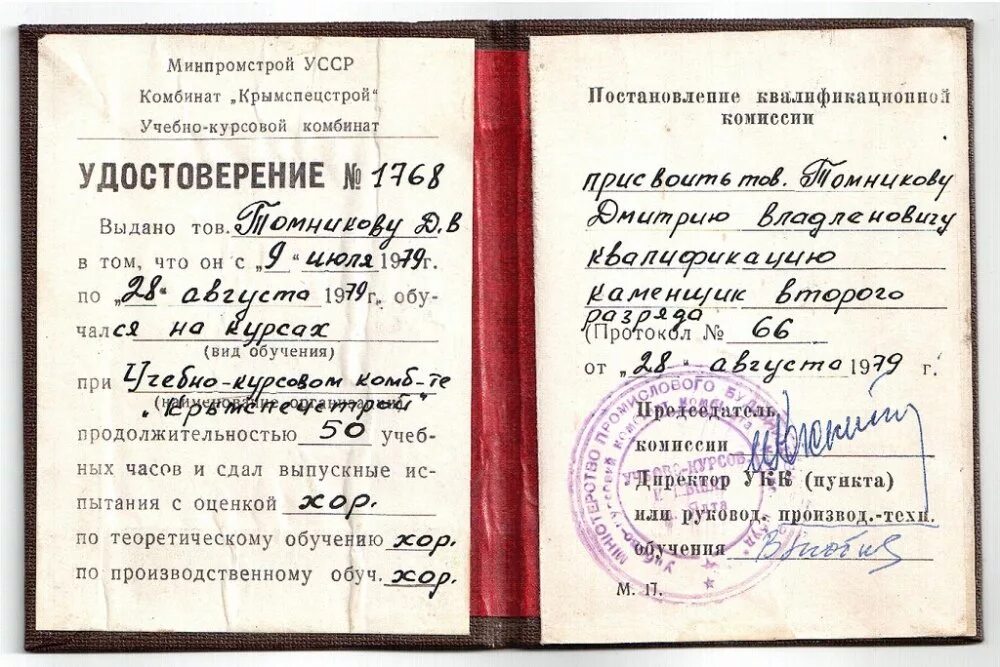 Минпромстрой УССР
Комбинат „Крымспецстрой"
Учебно-курсовой комбинат
УДОСТОВЕРЕНИЕ № 1768
Выдано тов. Томникову Д.В
в том, что он с „9" июля 1979г.
по „28" августа 1979г. обу-
чался на курсах
(вид обучения)
при Учебно-курсовом комб-те
(наименование организации)
„Крымспецстрой"
продолжительностью 50 учеб-
ных часов и сдал выпускные ис-
пытания с оценкой хор.
по теоретическому обучению хор.
по производственному обуч. хор.
Постановление квалификационной
комиссии
присвоить тов. Томникову
Дмитрию Владленовичу
квалификацию
каменщик второго
разряда
(Протокол № 66
от „28" августа 1979 г.
Председатель
комиссии
Директор УКК (пункта)
или руковод. производ.-техн.
обучения
М. П.
МІНІСТЕРСТВО ПРОМИСЛОВОГО
УЧБОВО-КУРСОВ
Ялта